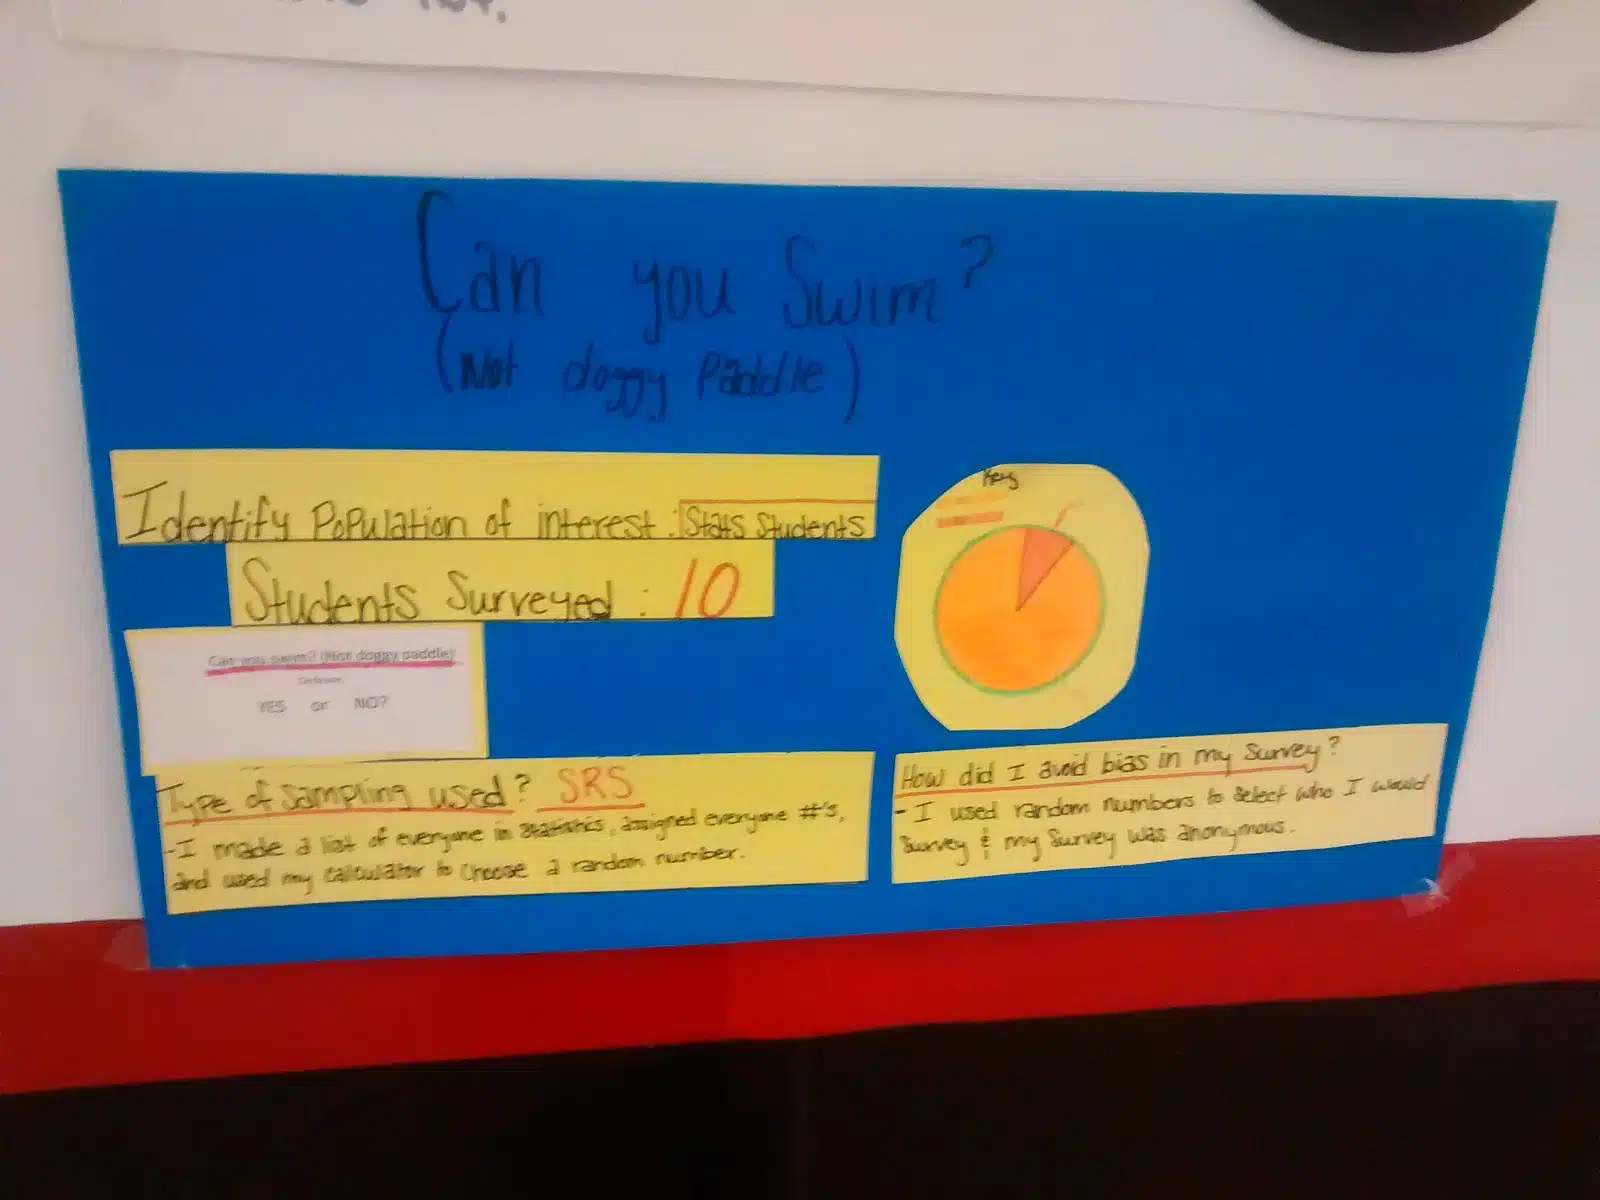 Can you Swim?
(Not doggy Paddle)
Identify Population of interest : Stats Students
Students Surveyed : 10
Can you swim? (Not doggy paddle)
YES or NO?
Type of Sampling used? SRS
- I made a list of everyone in Statistics, assigned everyone #'s,
and used my calculator to choose a random number.
Key
How did I avoid bias in my Survey?
- I used random numbers to select who I would
Survey & my Survey was anonymous.